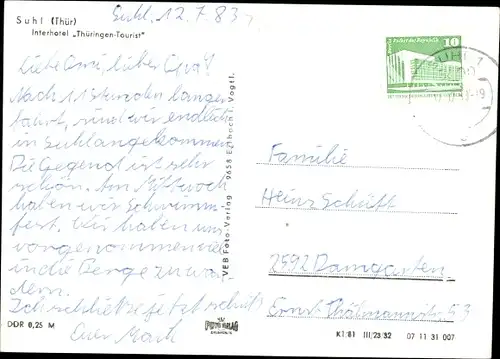 Suhl, 12.7.83
Suhl (Thür)
Interhotel „Thüringen-Tourist"
Liebe Omi, lieber Opa!
Nach 11 Stunden langer
Fahrt, sind wir endlich
in Suhl angekommen.
Die Gegend ist sehr
schön. Am Mittwoch
haben wir Schwimm-
fest. Wir haben uns
vorgenommen viel
in die Berge zu wan-
dern.
Ich schließe jetzt
Euer Maik
DDR 0,25 M
VEB Foto-Verlag 9658 Erlbach i. Vogtl.
FOTO VERLAG
ERLBACH
10
SUHL 1
Familie
Heinz Schütt
2592 Damgarten
Ernst-Thälmannstr. 53
K 1/81 III/23/32 07 11 31 007